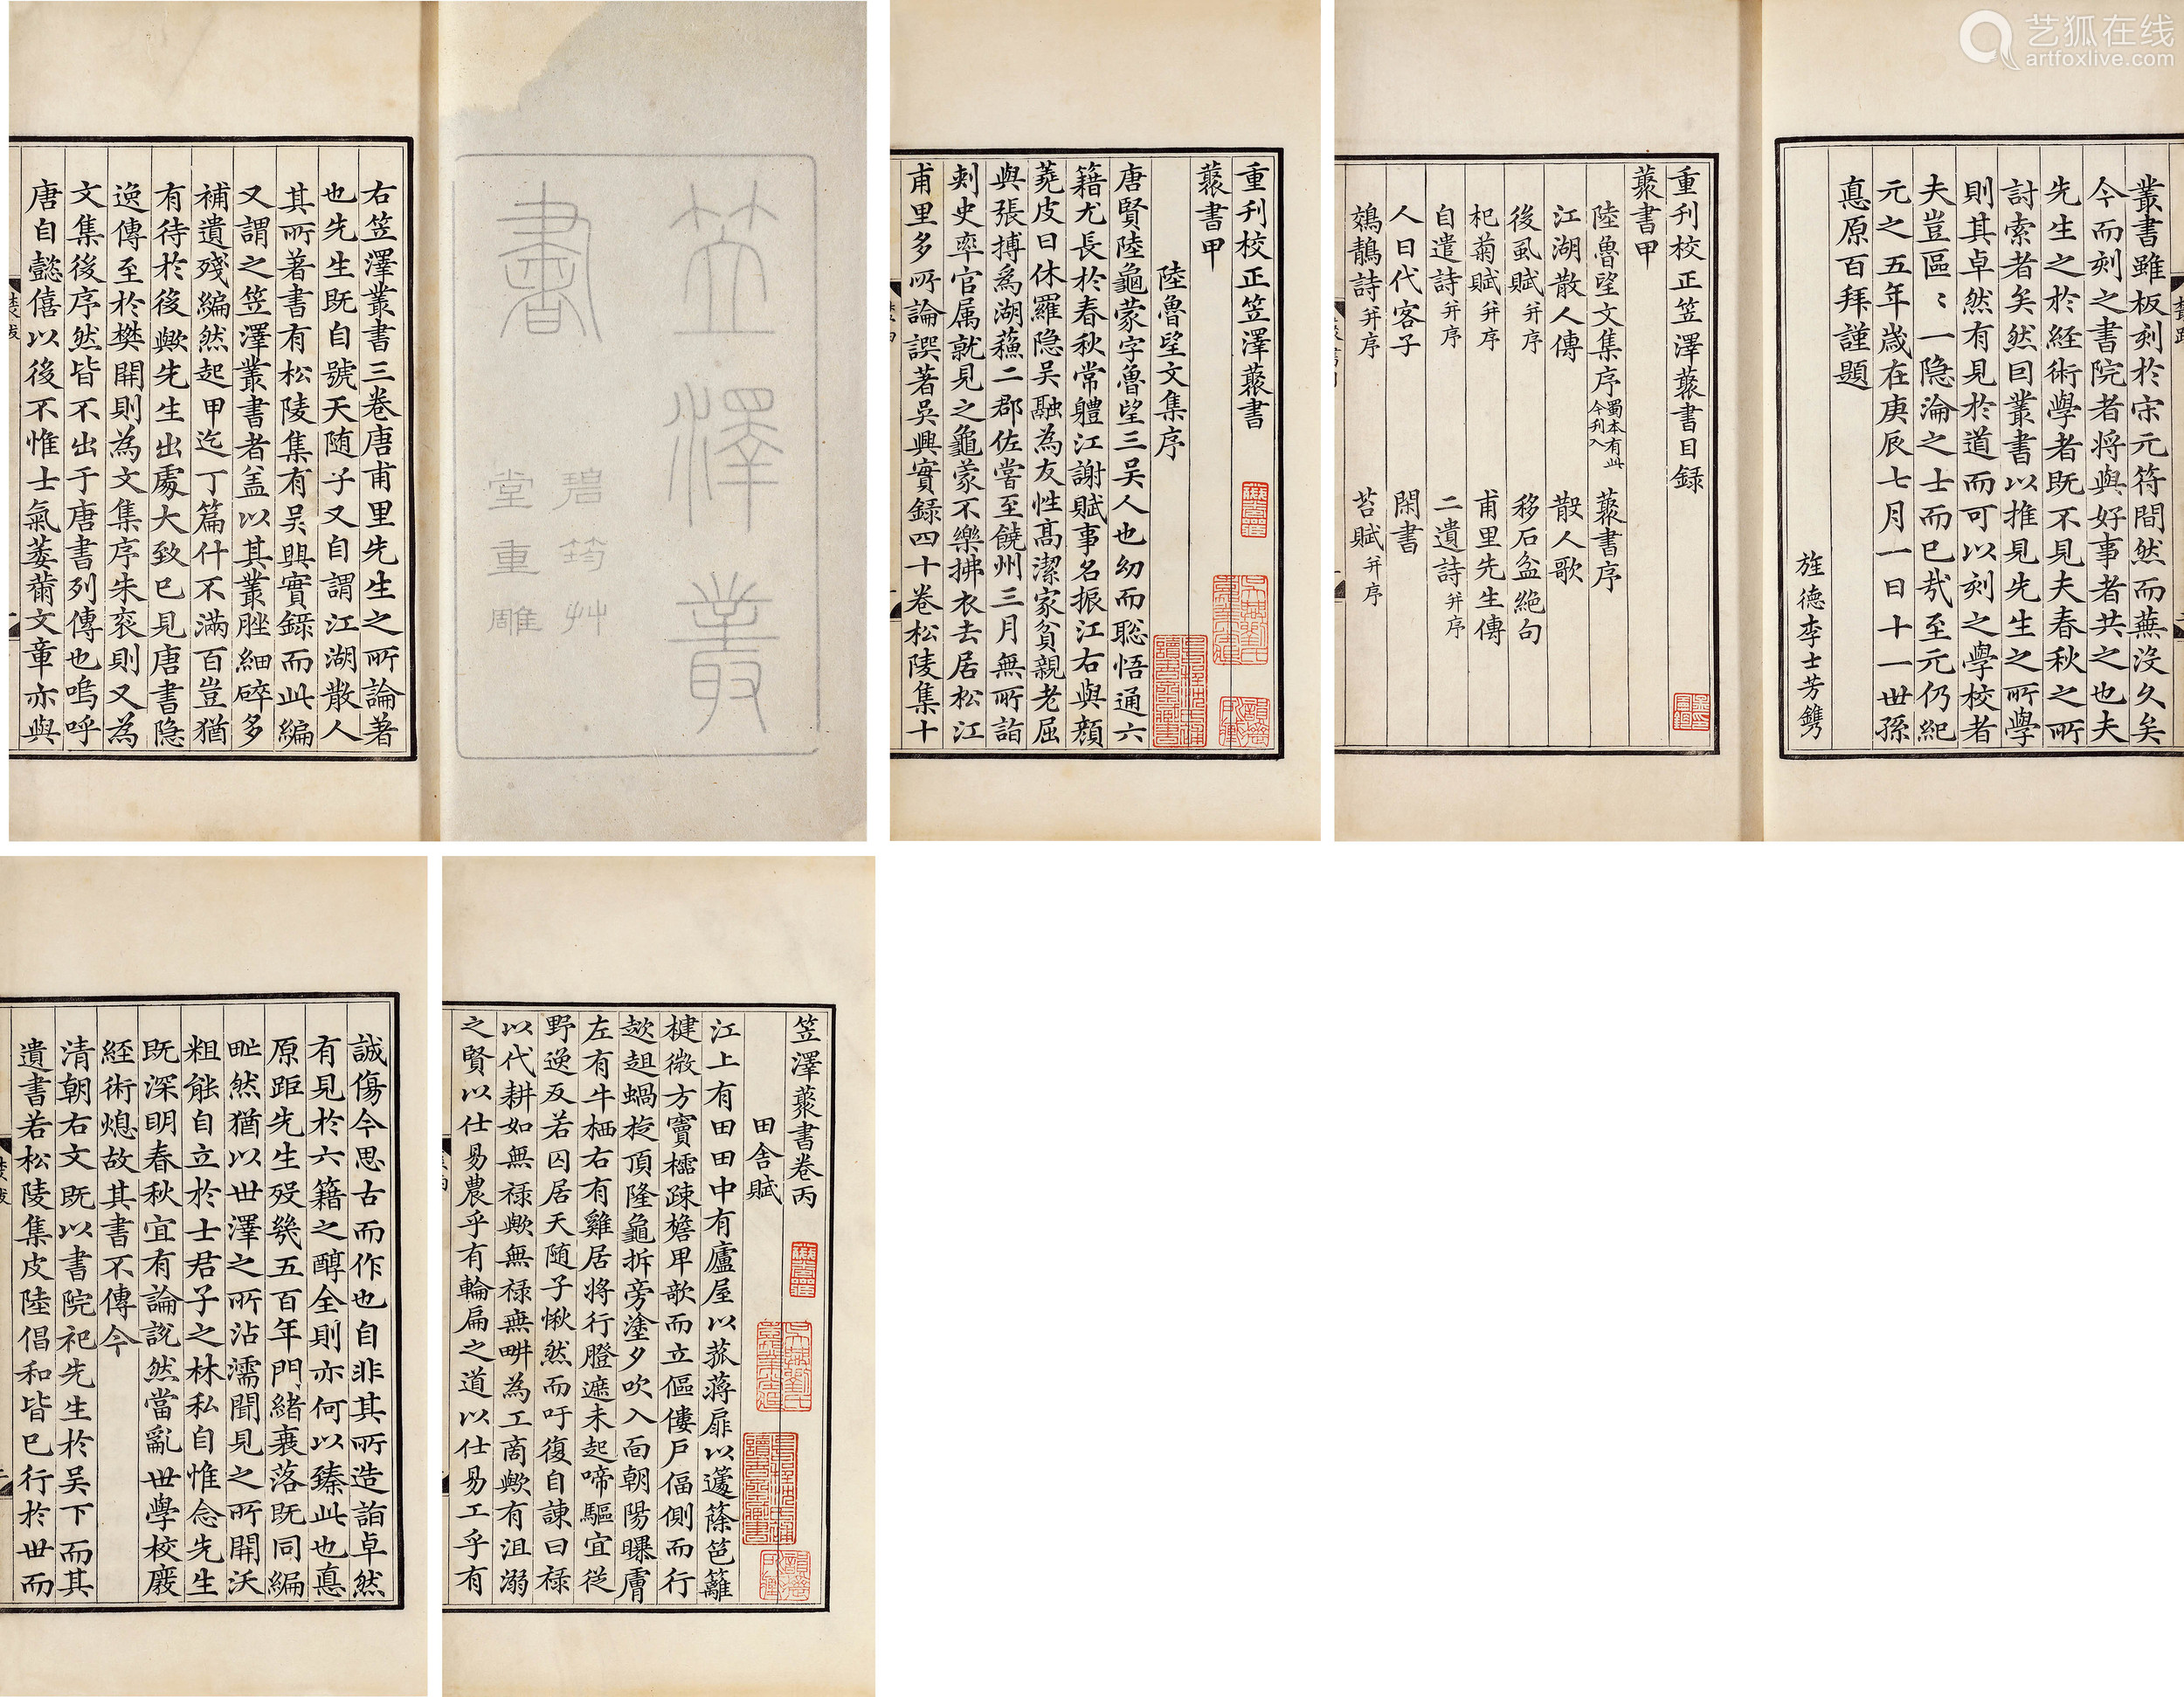 艺狐在线
artfoxlive.com
笠澤叢
書
碧筠艸
堂重雕
右笠澤叢書三卷唐甫里先生之所論著
也先生既自號天随子又自謂江湖散人
其所著書有松陵集有吴興實録而此編
又謂之笠澤叢書者盖以其叢脞細碎多
補遺殘編然起甲迄丁篇什不滿百豈猶
有待於後歟先生出處大致已見唐書隐
逸傳至於樊開則為文集序朱衮則又為
文集後序然皆不出于唐書列傳也嗚呼
唐自懿僖以後不惟士氣萎薾文章亦與
重刊校正笠澤藂書
藂書甲
陸魯望文集序
唐賢陸龜蒙字魯望三吴人也幼而聡悟通六
籍尤長於春秋常軆江謝賦事名振江右與顔
蕘皮日休羅隐吴融為友性高潔家貧親老屈
與張搏為湖蘓二郡佐嘗至饒州三月無所詣
刺史率官属就見之龜蒙不樂拂衣去居松江
甫里多所論譔著吴興實録四十卷松陵集十
重刊校正笠澤藂書目録
藂書甲
陸魯望文集序 蜀本有此今刊入 藂書序
江湖散人傳 散人歌
後虱賦并序 移石盆絶句
杞菊賦并序 甫里先生傳
自遣詩并序 二遺詩并序
人日代客子 閑書
鵁鶄詩并序 苔賦并序
叢書雖板刻於宋元符間然而蕪没久矣
今而刻之書院者将與好事者共之也夫
先生之於経術學者既不見夫春秋之所
討索者矣然曰叢書以推見先生之所學
則其卓然有見於道而可以刻之學校者
夫豈區〻一隐淪之士而已㢤至元仍紀
元之五年歲在庚辰七月一日十一世孫
悳原百拜謹題
旌德李士芳鐫
誠傷今思古而作也自非其所造詣卓然
有見於六籍之醇全則亦何以臻此也悳
原距先生殁幾五百年門緒衰落既同編
甿然猶以世澤之所沾濡聞見之所開沃
粗能自立於士君子之林私自惟念先生
既深明春秋宜有論説然當亂世學校廢
経術熄故其書不傳今
清朝右文既以書院祀先生於吴下而其
遺書若松陵集皮陸倡和皆已行於世而
笠澤藂書卷丙
田舎賦
江上有田田中有廬屋以菰蒋扉以籧篨笆籬
楗微方竇櫺踈檐卑欹而立傴僂戸偪側而行
趑趄蝸旋頂隆龜拆旁塗夕吹入面朝陽曝膚
左有牛栖右有雞居将行瞪遮未起啼驅宜従
野逸反若囚居天随子愀然而吁復自諫曰禄
以代耕如無禄歟無禄無畊為工商歟有沮溺
之賢以仕易農乎有輪扁之道以仕易工乎有